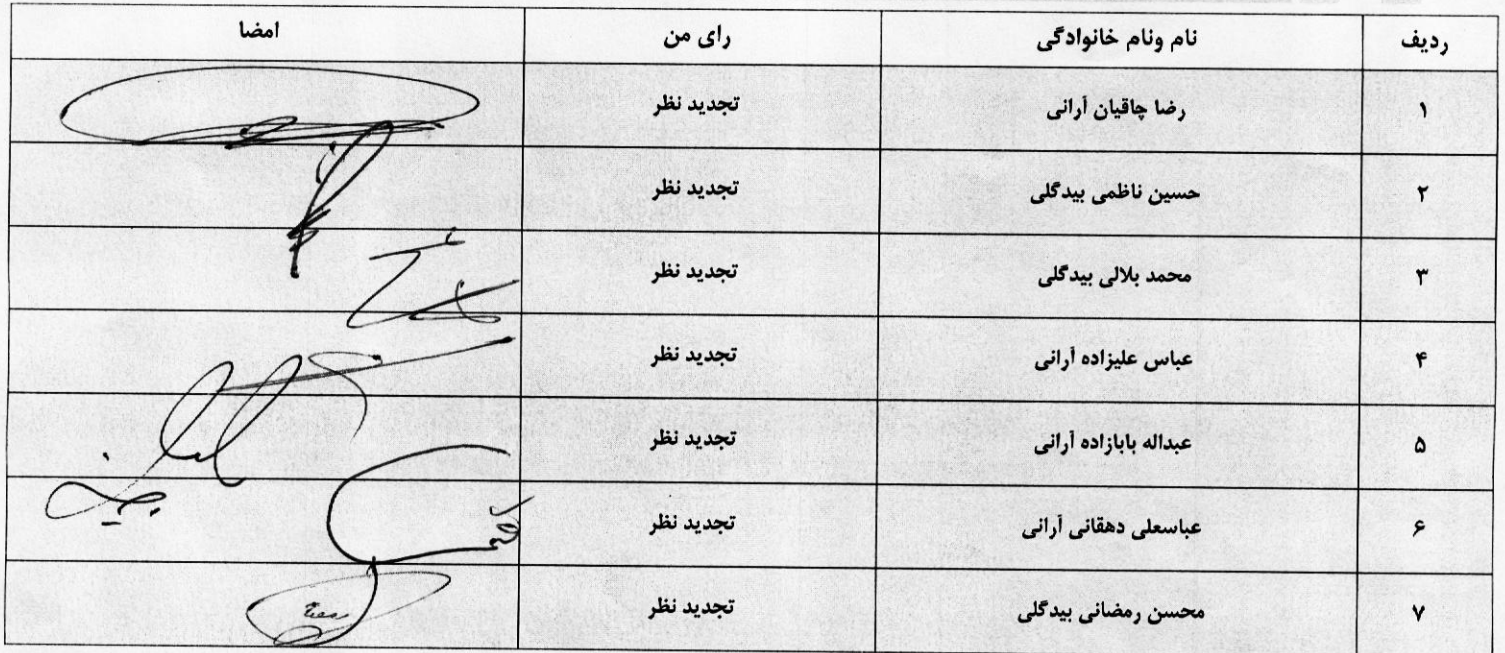 ردیف نام ونام خانوادگی رای من امضا
۱ رضا چاقیان آرانی تجدید نظر
۲ حسین ناظمی بیدگلی تجدید نظر
۳ محمد بلالی بیدگلی تجدید نظر
۴ عباس علیزاده آرانی تجدید نظر
۵ عبداله بابازاده آرانی تجدید نظر
۶ عباسعلی دهقانی آرانی تجدید نظر
۷ محسن رمضانی بیدگلی تجدید نظر